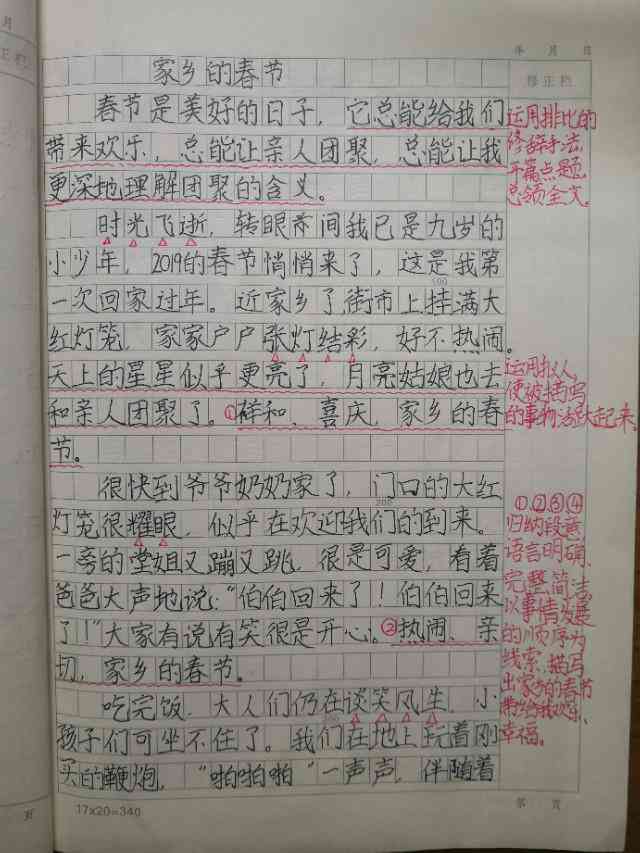 月
正栏
年 月 日
修正栏
家乡的春节
春节是美好的日子，它总能给我们
带来欢乐，总能让亲人团聚，总能让我
更深地理解团聚的含义。
运用排比的
修辞手法，
开篇点题，
总领全文。
时光飞逝，转眼茶间我已是九岁的
小少年，2019的春节悄悄来了，这是我第
100
一次回家过年。近家乡了街市上挂满大
红灯笼，家家户户张灯结彩，好不热闹。
天上的星星似乎更亮了，月亮姑娘也去
和亲人团聚了。①祥和、喜庆，家乡的春
节。
运用拟人，
使被描写
的事物活跃起来。
很快到爷爷奶奶家了，门口的大红
200
灯笼很耀眼，似乎在欢迎我们的到来。
一旁的堂姐又蹦又跳，很是可爱，看着
爸爸大声地说：“伯伯回来了！伯伯回来
了！”大家有说有笑很是开心。②热闹、亲
切，家乡的春节。
①.②③④
归纳段意
语言明确、
完整、简洁，
以事情发展
的顺序为
线索，描写
出家乡的春节
带给我欢乐、
幸福。
吃完饭，大人们仍在谈笑风生，小
孩子们可坐不住了。我们在地上玩着刚
买的鞭炮，“啪啪啪”一声声，伴随着
页
17×20=340
第 页